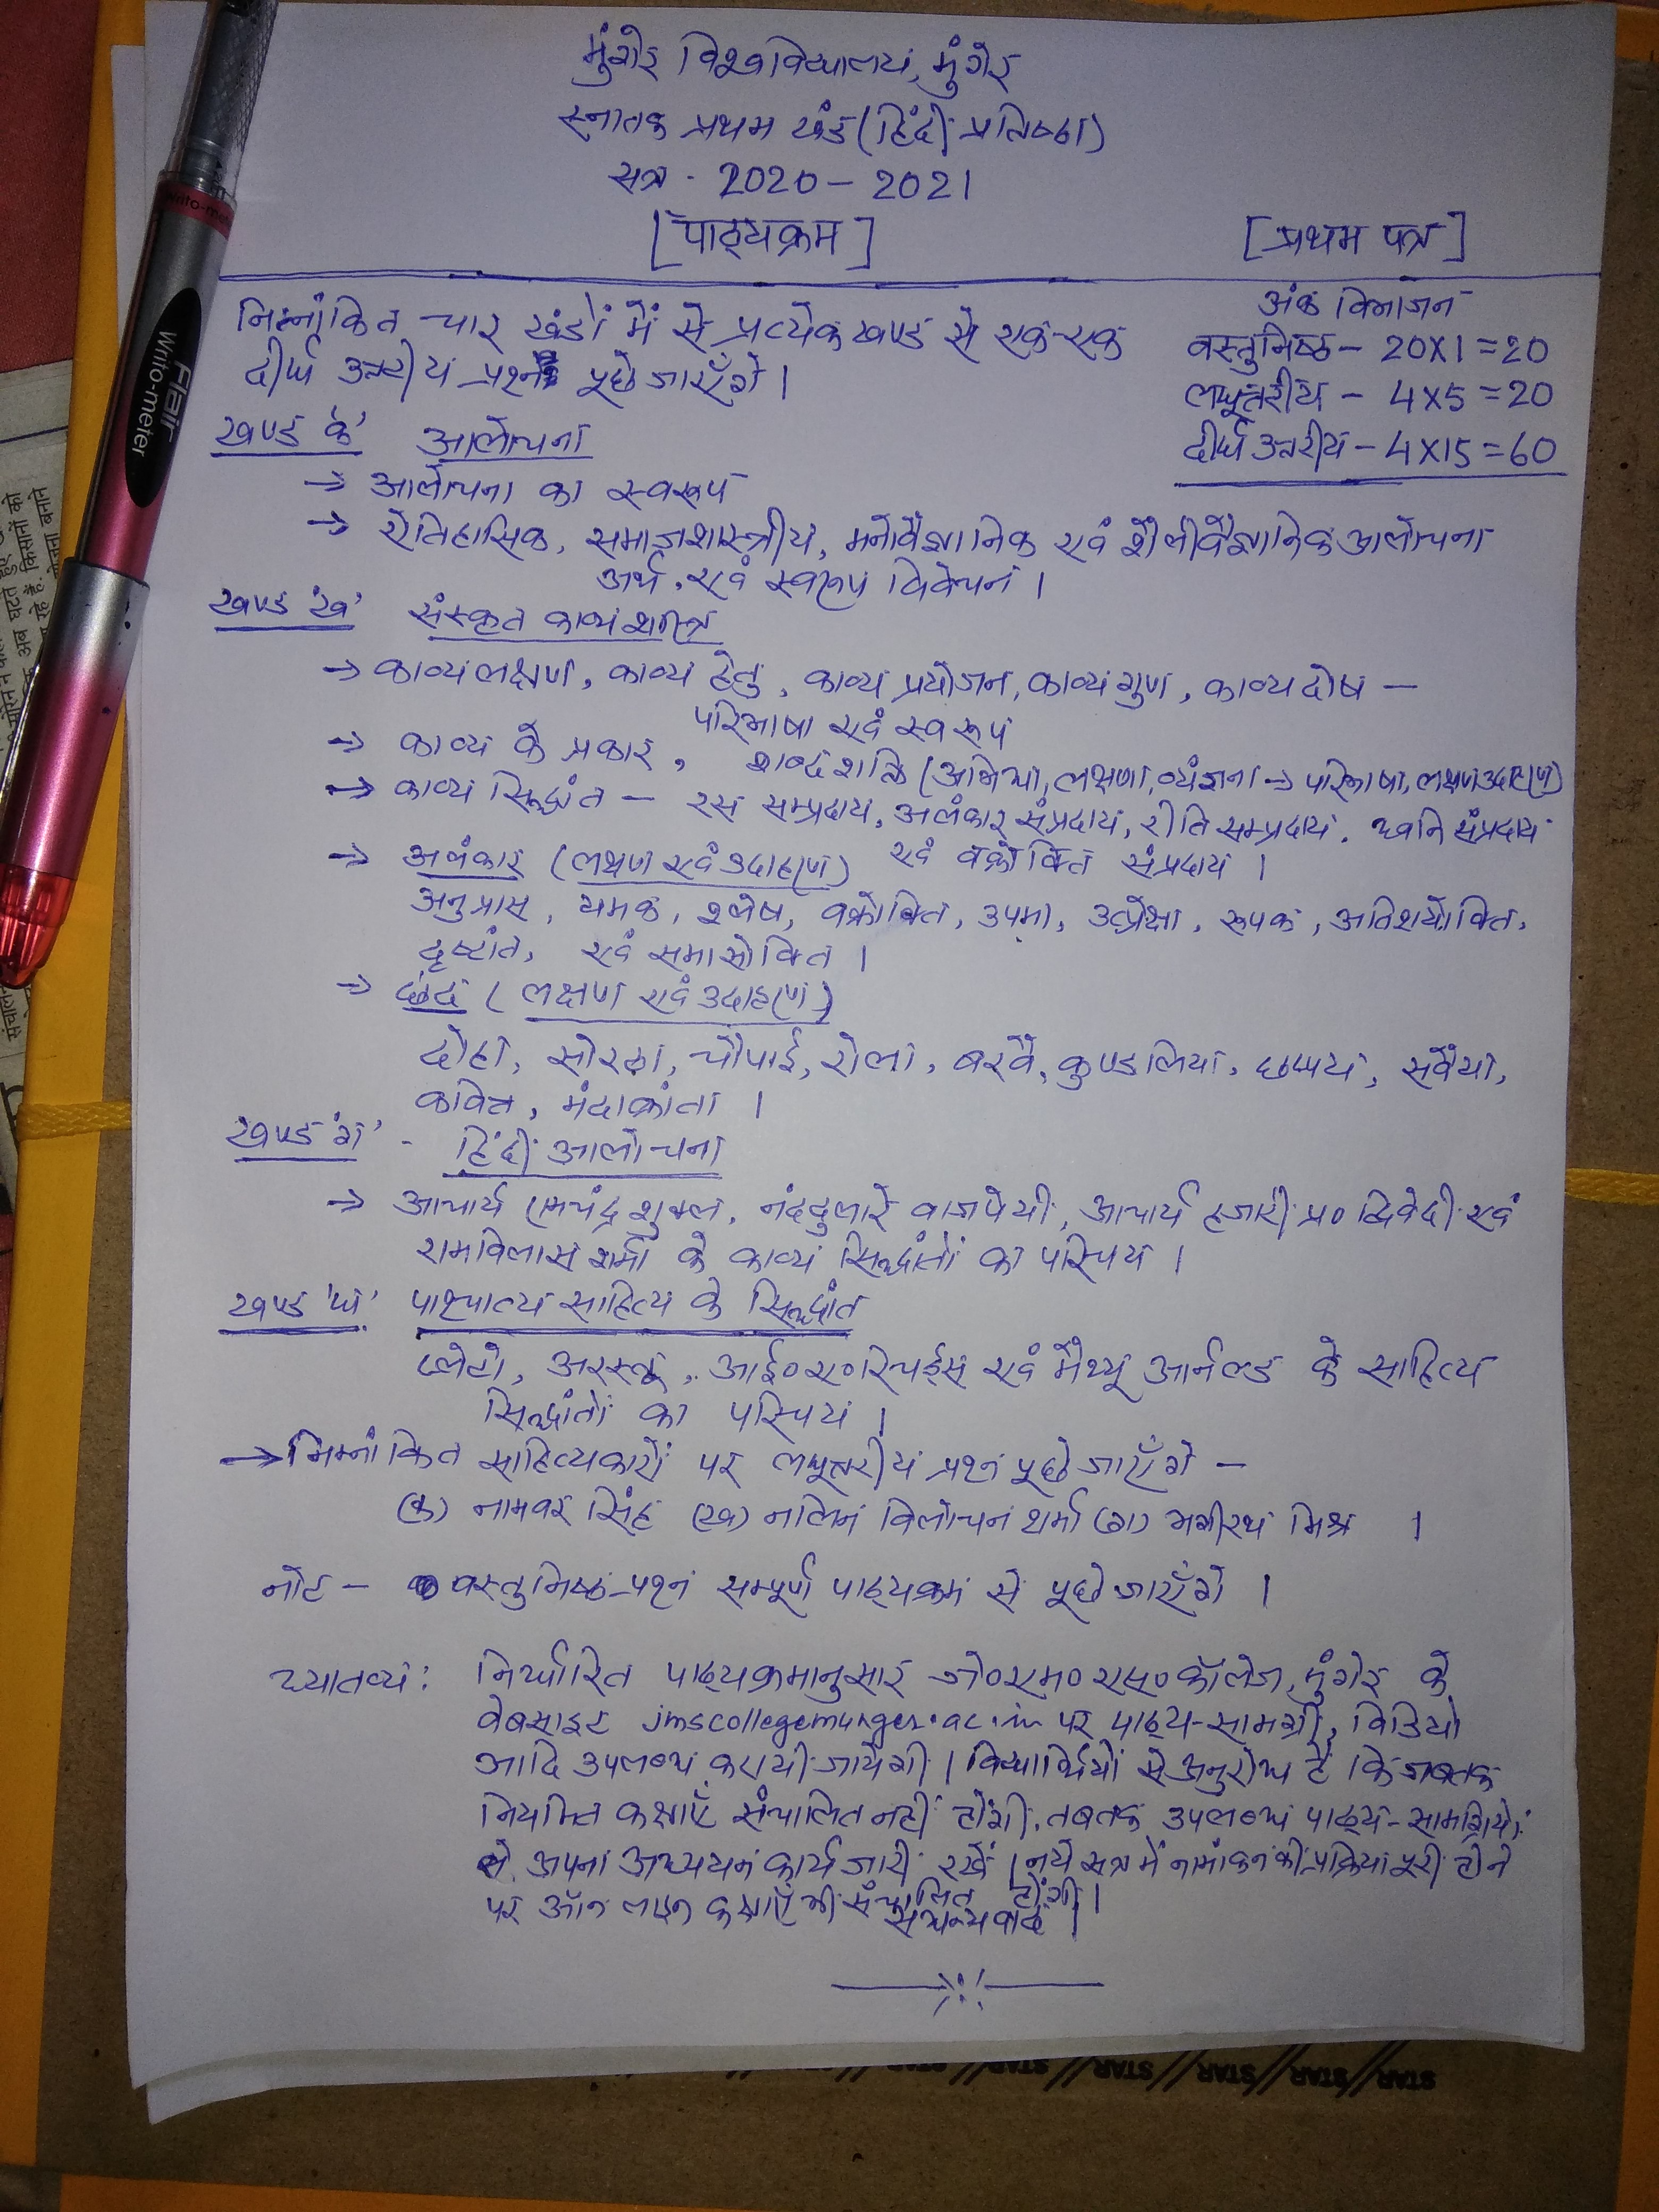 मुंगेर विश्वविद्यालय, मुंगेर
स्नातक प्रथम खंड (हिंदी प्रतिष्ठा)
सत्र - 2020 - 2021
[पाठ्यक्रम]
[प्रथम पत्र]
अंक विभाजन
वस्तुनिष्ठ - 20X1=20
लघूत्तरीय - 4X5=20
दीर्घ उत्तरीय - 4X15=60
निम्नांकित चार खंडों में से प्रत्येक खण्ड से एक-एक
दीर्घ उत्तरीय प्रश्न पूछे जाएँगे।
खण्ड 'क' आलोचना
→ आलोचना का स्वरूप
→ ऐतिहासिक, समाजशास्त्रीय, मनोवैज्ञानिक एवं शैलीवैज्ञानिक आलोचना
अर्थ एवं स्वरूप विवेचन।
खण्ड 'ख' संस्कृत काव्यशास्त्र
→ काव्य लक्षण, काव्य हेतु, काव्य प्रयोजन, काव्य गुण, काव्य दोष —
परिभाषा एवं स्वरूप
→ काव्य के प्रकार, शब्द शक्ति (अभिधा, लक्षणा, व्यंजना → परिभाषा, लक्षण उदाहरण)
→ काव्य सिद्धांत — रस सम्प्रदाय, अलंकार संप्रदाय, रीति सम्प्रदाय, ध्वनि संप्रदाय
एवं वक्रोक्ति संप्रदाय।
→ अलंकार (लक्षण एवं उदाहरण)
अनुप्रास, यमक, श्लेष, वक्रोक्ति, उपमा, उत्प्रेक्षा, रूपक, अतिशयोक्ति,
दृष्टांत, एवं समासोक्ति।
→ छंद (लक्षण एवं उदाहरण)
दोहा, सोरठा, चौपाई, रोला, बरवै, कुण्डलिया, छप्पय, सवैया,
कवित्त, मंदाक्रांता।
खण्ड 'ग' - हिंदी आलोचना
→ आचार्य रामचंद्र शुक्ल, नंददुलारे वाजपेयी, आचार्य हजारी प्र० द्विवेदी एवं
रामविलास शर्मा के काव्य सिद्धांतों का परिचय।
खण्ड 'घ' पाश्चात्य साहित्य के सिद्धांत
प्लेटो, अरस्तू, आई०ए०रिचर्ड्स एवं मैथ्यू आर्नल्ड के साहित्य
सिद्धांतों का परिचय।
→ निम्नांकित साहित्यकारों पर लघूत्तरीय प्रश्न पूछे जाएँगे —
(क) नामवर सिंह (ख) नलिन विलोचन शर्मा (ग) भगीरथ मिश्र ।
नोट — वस्तुनिष्ठ प्रश्न सम्पूर्ण पाठ्यक्रम से पूछे जाएँगे।
ध्यातव्य: निर्धारित पाठ्यक्रमानुसार जे०एम०एस० कॉलेज, मुंगेर के
वेबसाइट jmscollegemunger.ac.in पर पाठ्य-सामग्री, विडियो
आदि उपलब्ध करायी जायेगी। विद्यार्थियों से अनुरोध है कि जबतक
नियमित कक्षाएँ संचालित नहीं होंगी, तबतक उपलब्ध पाठ्य-सामग्रियों
से अपना अध्ययन कार्य जारी रखें। नये सत्र में नामांकन की प्रक्रिया पूरी होने
पर ऑन लाइन कक्षाएँ भी संचालित होंगी।
सधन्यवाद।
Flair
Writo-meter
STAR // STAR // STAR // STAR // STAR